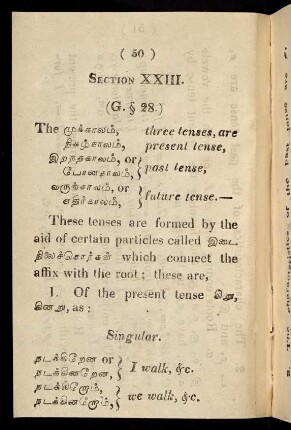 ( 50 )
SECTION XXIII.
(G. § 28.)
The முக்காலம், three tenses, are
நிகழ்காலம், present tense,
இறந்தகாலம், or
போனகாலம், } past tense,
வருங்காலம், or
எதிர்காலம், } future tense.—
These tenses are formed by the
aid of certain particles called இடை
நிலைச்சொற்கள் which connect the
affix with the root: these are,
1. Of the present tense கிறு,
கின்று, as:
Singular.
நடக்கிறேன் or
நடக்கின்றேன், } I walk, &c.
நடக்கிறோம்,
நடக்கின்றோம், } we walk, &c.